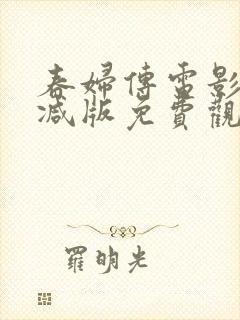 春婦傳電影
减版免費觀
羅明光